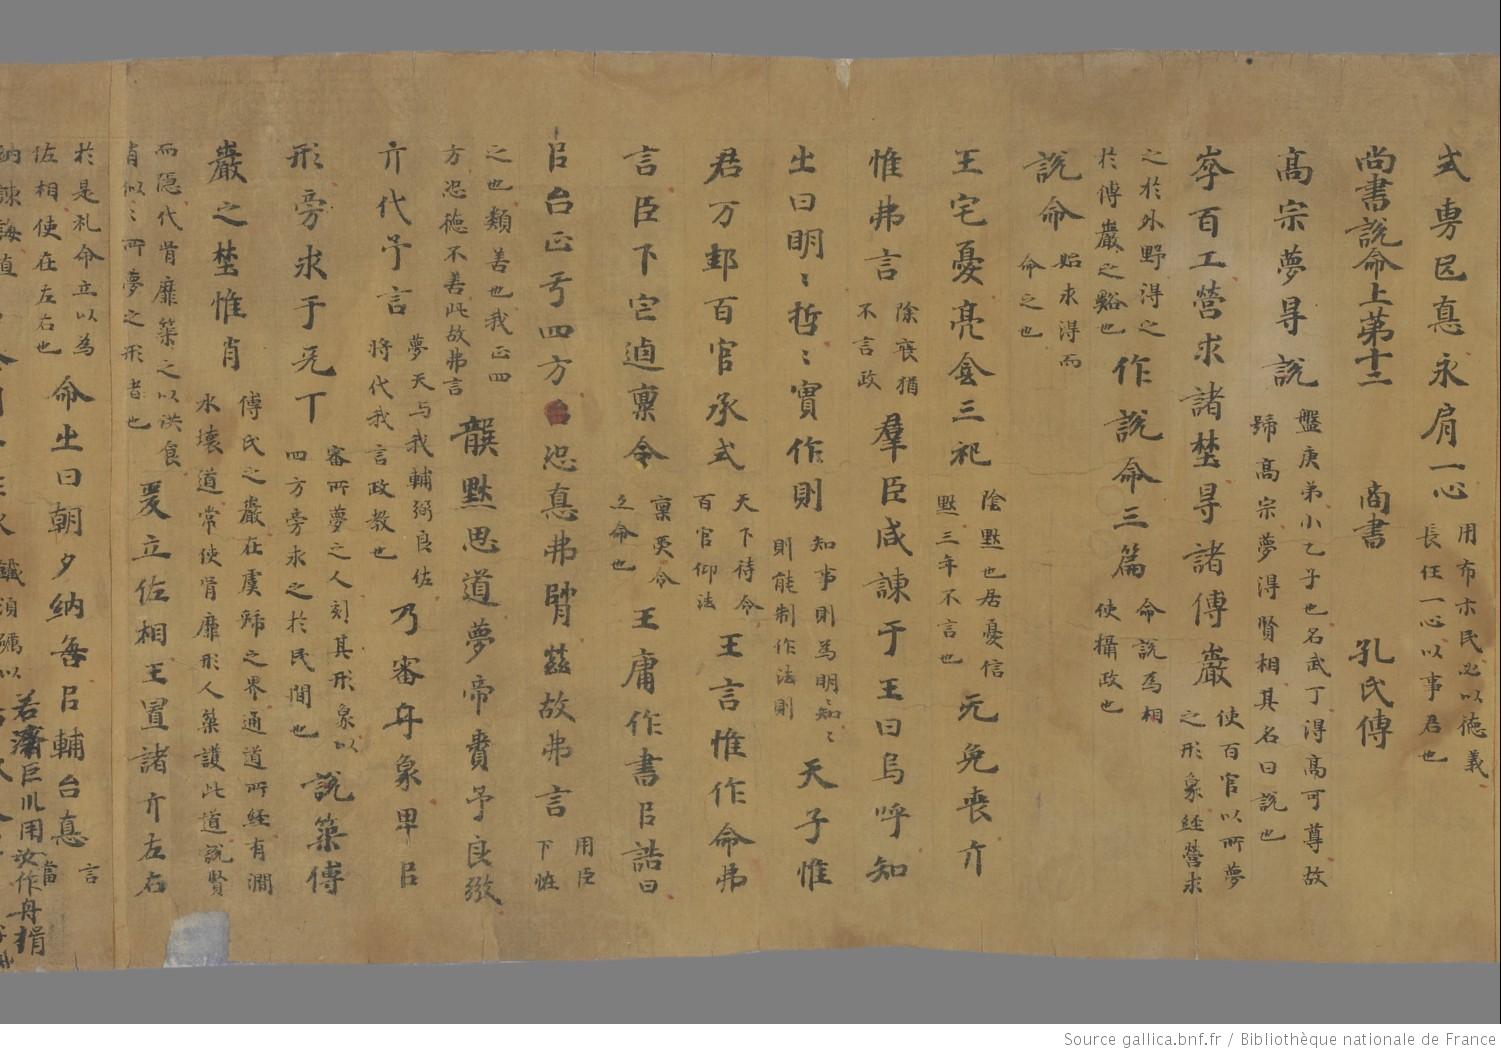 式旉㞢悳永肩一心 用布示民必以徳義長任一心以事君也
尚書說命上第十二 商書 孔氏傳
髙宗夢㝵說 盤庚弟小乙子也名武丁得髙可尊故號髙宗夢得賢相其名曰說也
百工營求諸埜㝵諸傅巖 使百官以所夢之形象經營求
之於外野得之於傅巖之谿也 作說命三篇 命說為相使攝政也
說命 始求得而命之也
王宅憂亮三祀 陰默也居憂信默三年不言也 免喪亣
惟弗言 除喪猶不言政 羣臣咸諫于王曰烏呼知
㞢曰明〻哲〻實作則 知事則為明知〻則能制作法則 天子惟
君万邦百官承式 天下待令百官仰法 王言惟作命弗
言臣下它逌稟令 稟受令之命也 王庸作書㠯誥曰
㠯台正亐四方台恐悳弗茲故弗言 用臣下恠
之也類善也我正四方恐徳不善此故弗言 默思道夢帝賚予良弼
亣代予言 夢天与我輔弼良佐將代我言政教也 乃審象畁㠯
形旁求于天丅 審所夢之人刻其形象以四方旁求之於民間也 說築傅
巖之埜惟肖 傅氏之巖在虞虢之界通道所經有澗水壊道常使胥靡形人築護此道說賢
而隠代胥靡築之以洪食肖似〻所夢之形者也 爰立佐相王置諸亣左右
於是礼命立以為佐相使在左右也 命㞢曰朝夕納㠯輔台悳 言當
納諫誨直
若濟巨川用汝作舟揖
Source gallica.bnf.fr / Bibliothèque nationale de France